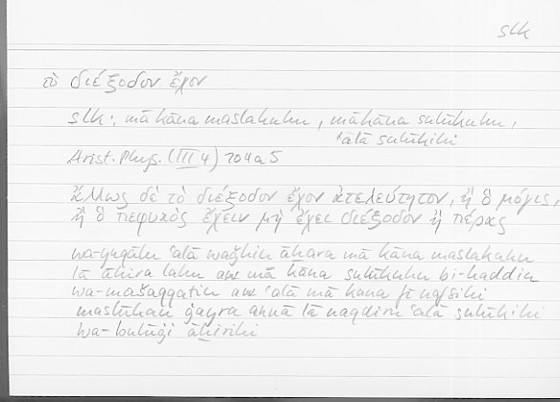 slk
τὸ διέξοδον ἔχον
slk: mā kāna maslakuhu, mā kāna sulūkuhu,
ʿalā sulūkihi
Arist. Phys. (III 4) 204a5
ἄλλως δὲ τὸ διέξοδον ἔχον ἀτελεύτητον, ἢ ὃ μόγις,
ἢ ὃ πεφυκὸς ἔχειν μὴ ἔχει διέξοδον ἢ πέρας
wa-yuqālu ʿalā waǧhin āḫara mā kāna maslakuhu
lā āḫira lahu aw mā kāna sulūkuhu bi-kaddin
wa-mašaqqatin aw ʿalā mā kāna fī nafsihi
maslūkan ġayra annā lā naqdiru ʿalā sulūkihi
wa-bulūġi āḫirihi